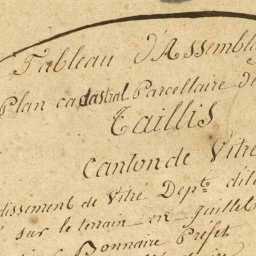 Tableau d'Assembla
Plan cadastral Parcellaire d
Taillis
Canton de Vitré
dissement de Vitré Dept d'ile
sur le terrain en juillet
Bonnaire Préfet